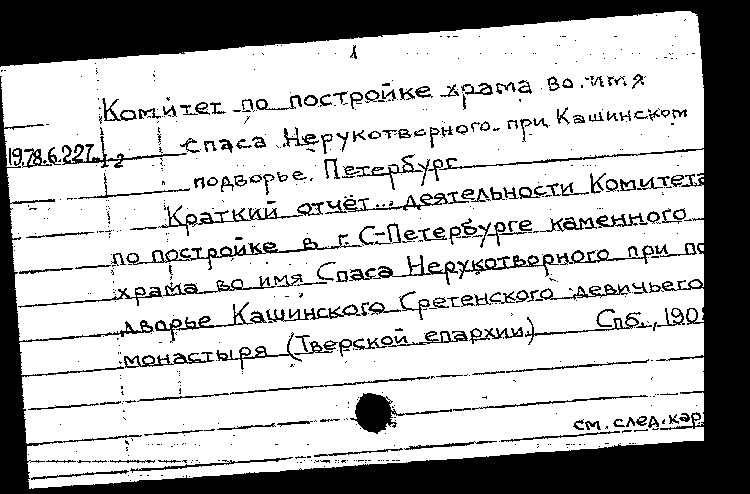 1
Комитет по постройке храма во имя
Спаса Нерукотворного при Кашинском
19.78.6.227 1-2
подворье. Петербург
Краткий отчёт... деятельности Комитета
по постройке в г. С-Петербурге каменного
храма во имя Спаса Нерукотворного при по
дворье Кашинского Сретенского девичьего
монастыря (Тверской епархии.) Спб., 190
см. след. кар